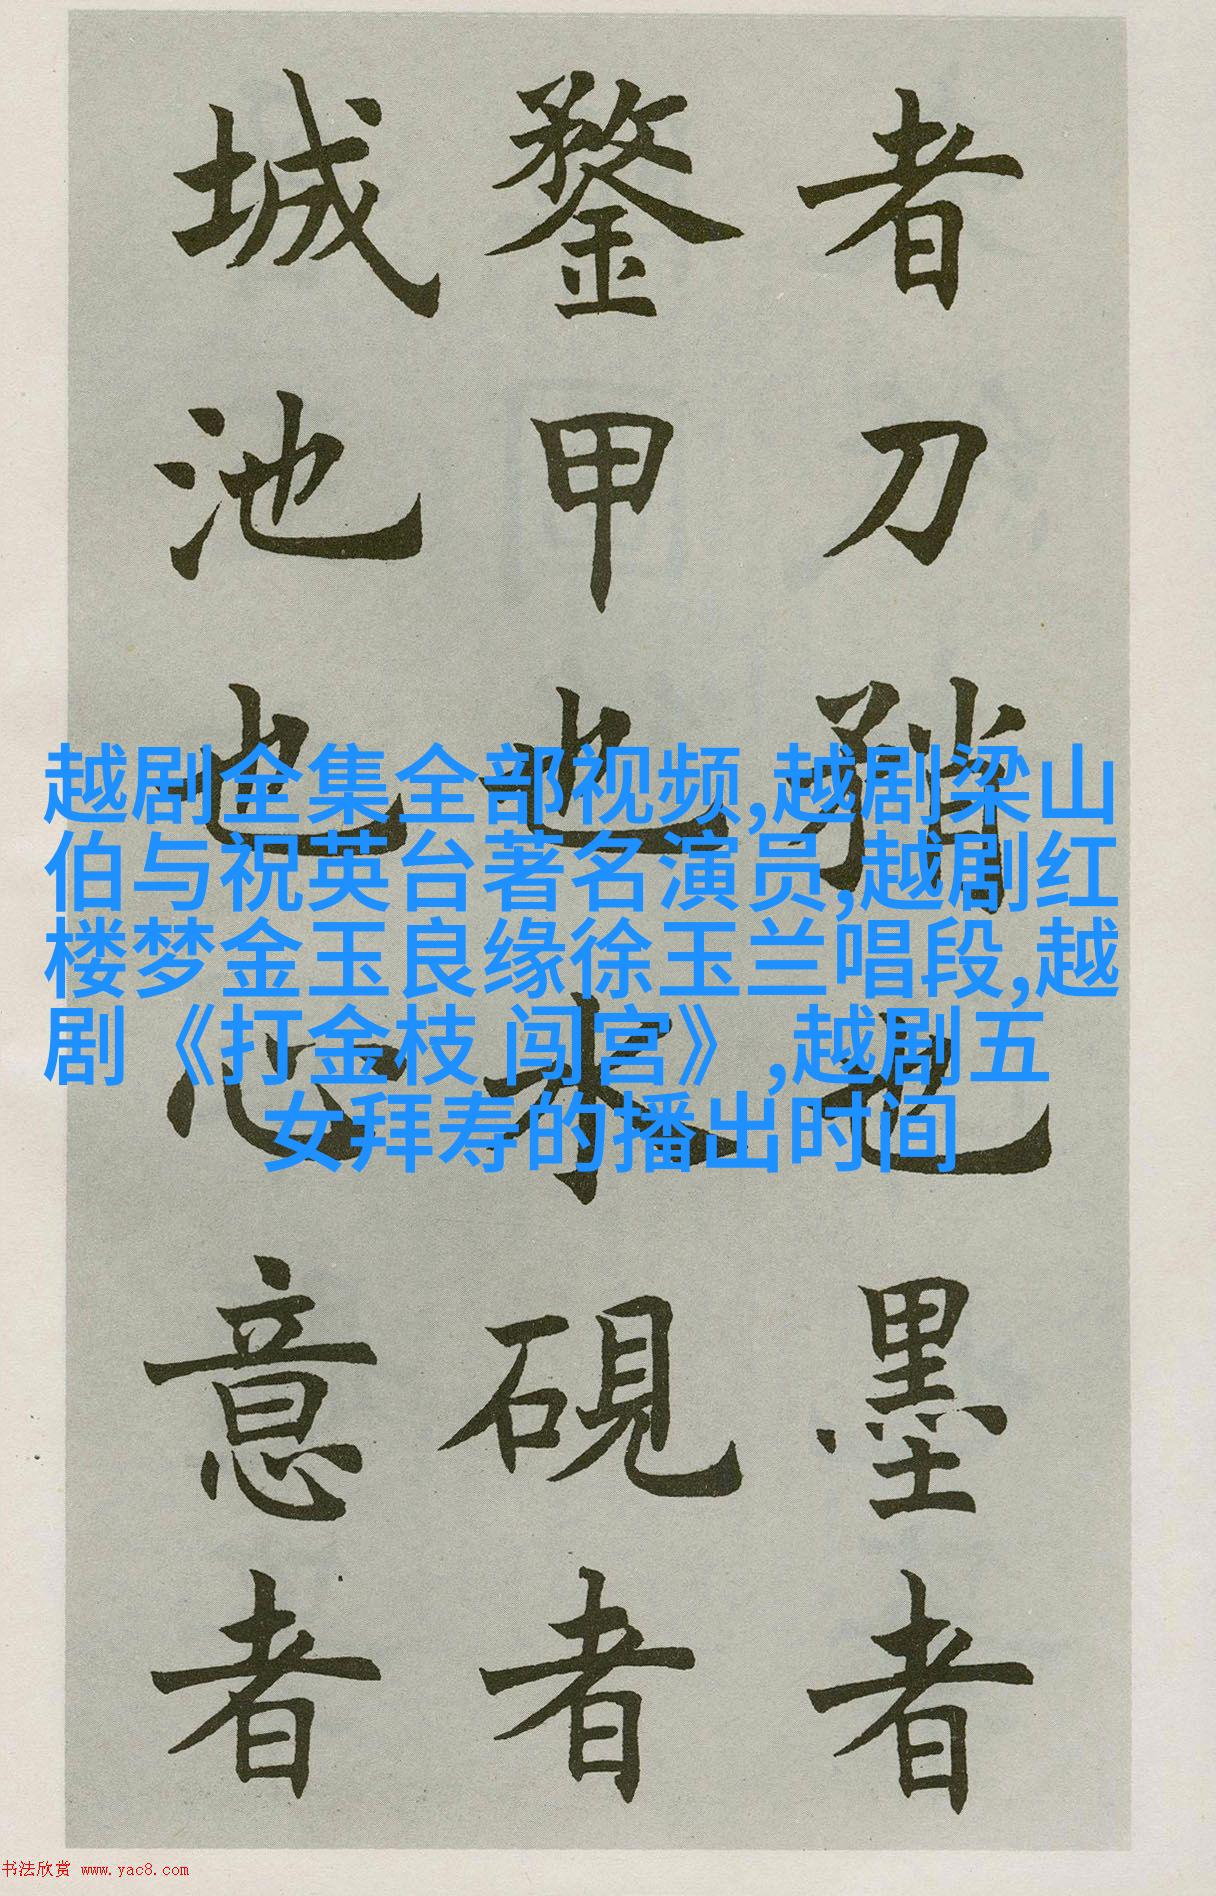 者刀矟也墨者
鍪甲也水硯者
城池也心意者
越剧全集全部视频,越剧梁山
伯与祝英台著名演员,越剧红
楼梦金玉良缘徐玉兰唱段,越
剧《打金枝 闯宫》,越剧五
女拜寿的播出时间
书法欣赏 www.yac8.com